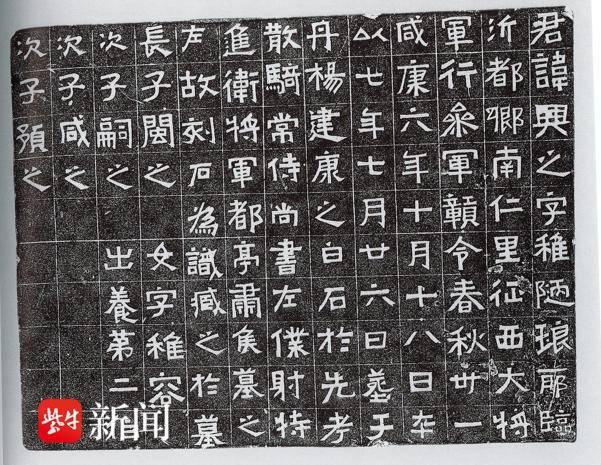 君諱興之字稚陋琅耶臨
沂都鄉南仁里征西大將
軍行叅軍贛令春秋卅一
咸康六年十月十八日卒
以七年七月廿六日葬于
丹楊建康之白石於先考
散騎常侍尚書左僕射特
進衛將軍都亭肅侯墓之
左故刻石為識臧之於墓
長子閩之 女字稚容
次子嗣之 出養第二
次子咸之
次子預之
紫牛 新闻